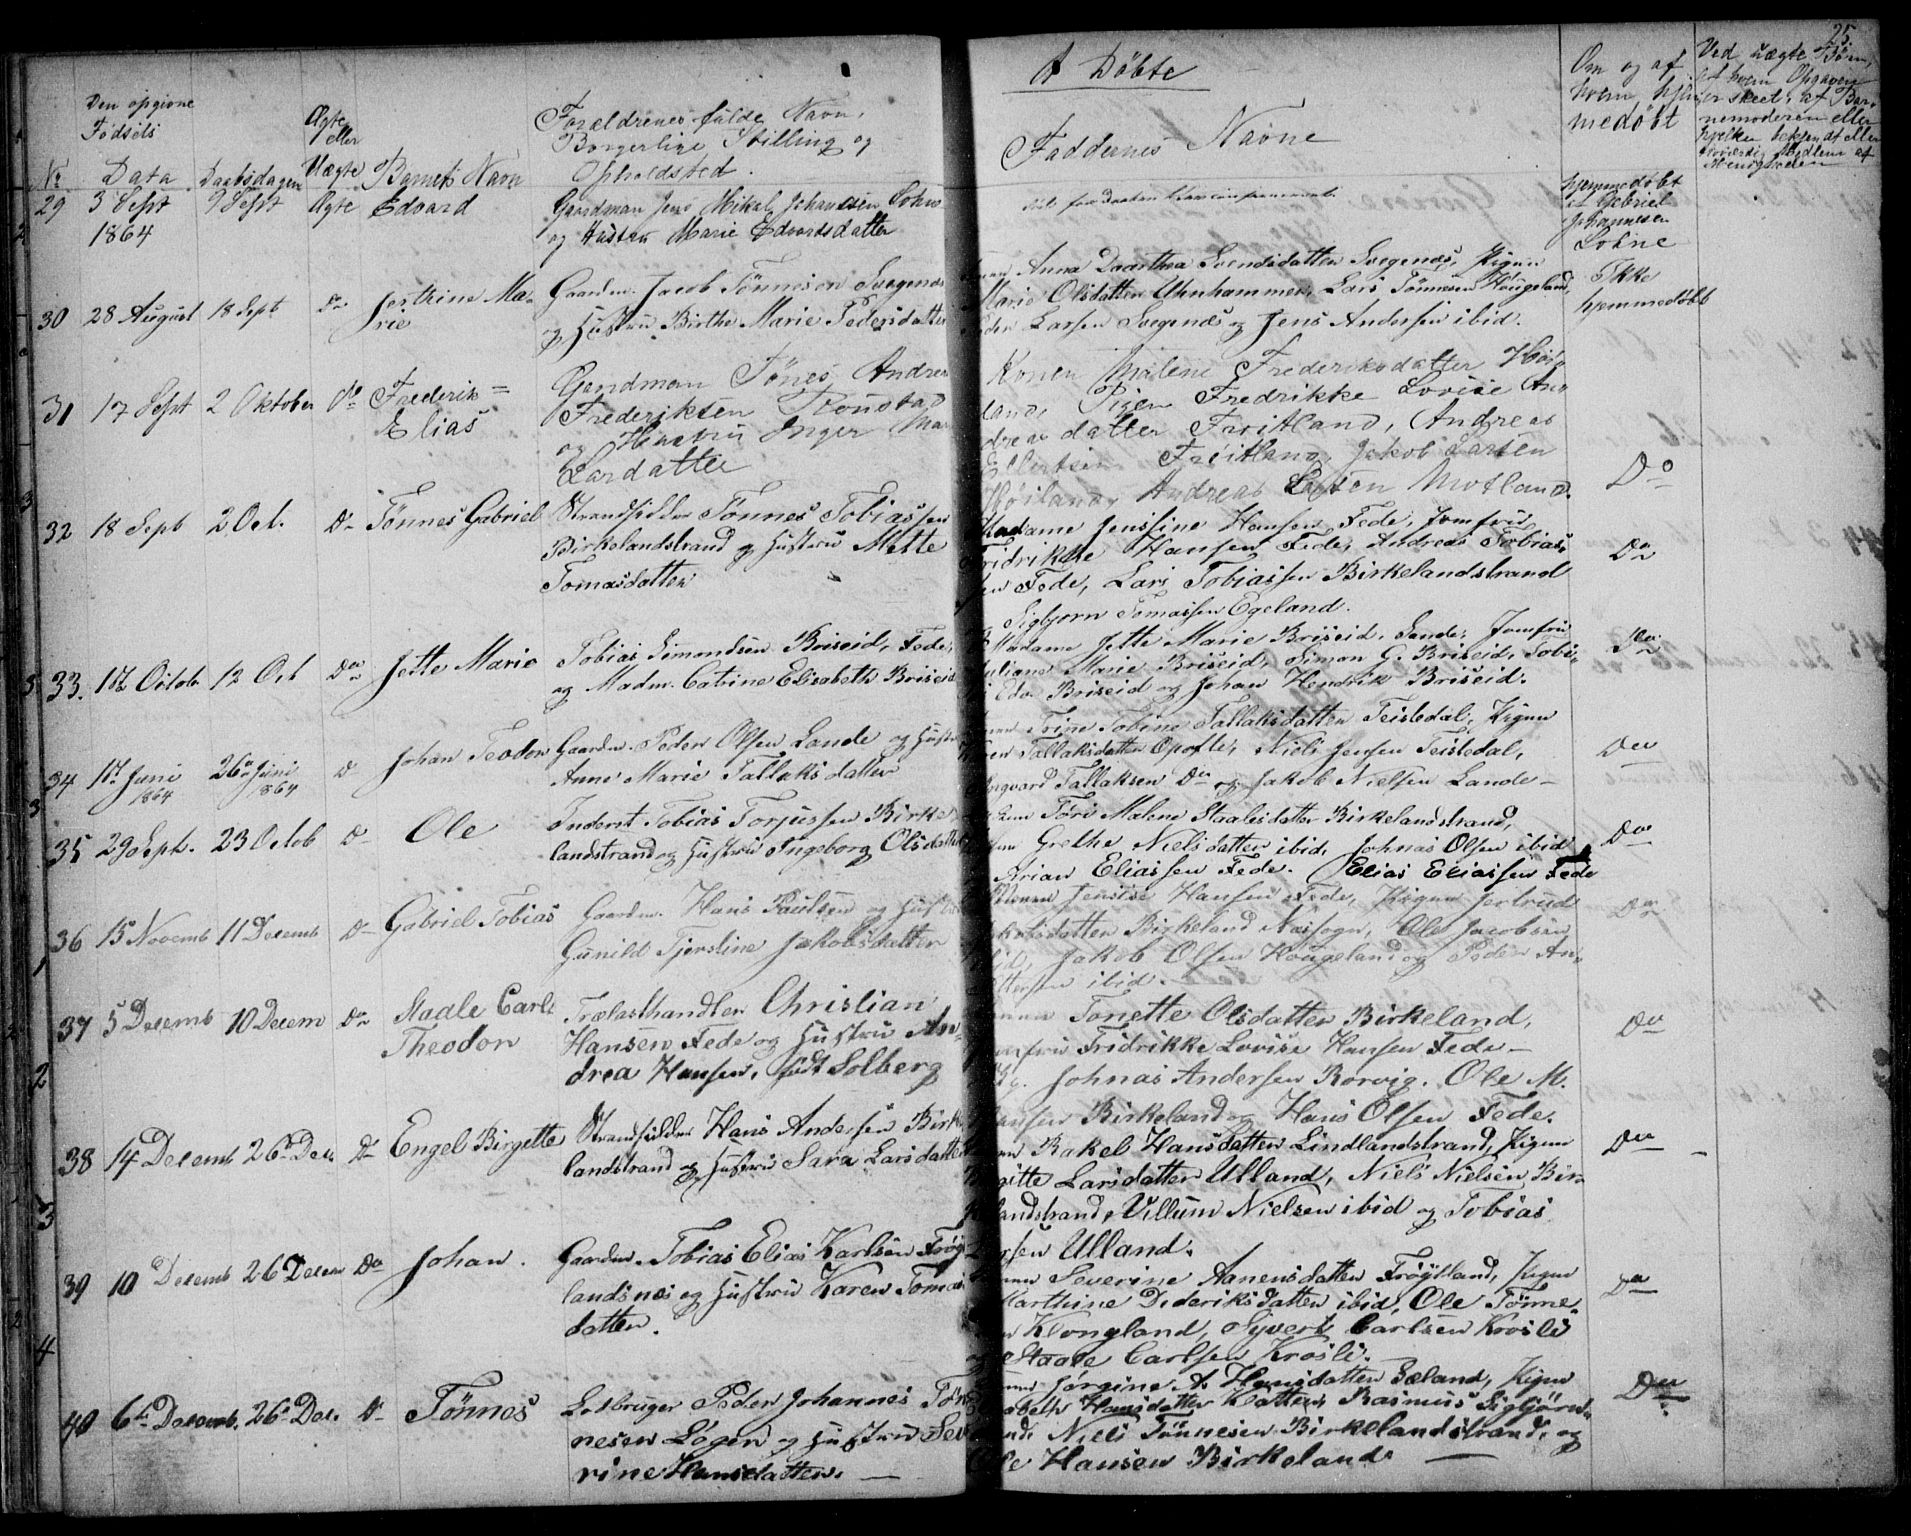 25.
A Döbte
Den opgivne
Födsels
Ægte
eller
Forældrenes fulde Navn,
Borgerlige Stilling og
Opholdsted.
No Data Daabsdagen Uægte Barnets Navn
Faddernes Navne
Om og af
hvem hjem
medöbt
Ved uægte Börn,
af hvem Opgaven
er skeet, af Bar-
nemoderen eller
29 3 Sept 9 Sept Ægte Edvard
1864
Gaardman Jens Mikal Johannesen Lohne
og Hustru Marie Edvardsdatter
hjemmedöbt
af Gebriel
Johannesen
Lohne
30 28 August 18 Sept Do Jerthine Ma-
rie
Gaardm. Jacob Tönnesen Svegenes
og Hustru Birthe Marie Pedersdatter
Anna Dorthea Svendsdatter Svegenes, Pigen
Marie Olsdatter Uhnhammer, Lars Tönnesen Hougeland,
Larsen Svegenes og Jens Andersen ibid.
Ikke
hjemmedöbt
31 17 Sept 2 Oktober Do Frederik=
Elias
Gardman Tönes Andreas
Frederiksen
og Hustru Inger
Larsdatter
Konen Malene Frederiksdatter Höi-
land, Pigen Fredrikke Lovise An-
dreasdatter Fröitland, Andreas
Ellertsen Fröitland, Jakob Larsen
Höiland, Andreas Larsen Motland.
Do
32 18 Sept 2 Oct. Do Tönnes Gabriel
Strandsidder Tönnes Tobiassen
Birkelandstrand og Hustru Mette
Tomasdatter
Madame Jensine Hansen Fede, Jomfru
Fridrikke Hansen Fede, Andreas Tobias-
sen Fede, Lars Tobiassen Birkelandstrand
Sigbjorn Tomassen Egeland.
Do
33. 12 Octob 12 Oct Do Jette Marie
Tobias Simondsen Briseid, Fede,
og Madm. Catrine Elisabeth Briseid
Madame Jette Marie Briseid, Sande, Jomfru
Juliane Marie Briseid, Simon G. Briseid, Tobi-
Edv. Briseid og Johan Hendrik Briseid.
Do
34 17 Juni 26 Juni Do Johan Teodor
1864 1864
Gaardm. Peder Olsen Lande og Hustru
Anne Marie Tallaksdatter
Trine Tobine Tallaksdatter Teistedal, Pigen
Tallaksdatter Opofte, Niels Jensen Teistedal,
Ingvard Tallaksen Do og Jakob Nielsen Lande
Do
35 29 Sept. 23 Octob Do Ole
Inderst Tobias Torjussen Birke-
landstrand og Hustru Ingeborg Olsdatter
Töri Malene Staalesdatter Birkelandstrand,
Grethe Nielsdatter ibid, Johnas Olsen ibid
Arian Eliassen Fede. Elias Eliassen Fede
Do
36 15 Novemb 11 Decemb Do Gabriel Tobias
Gaardm. Hans Paulsen og Hustru
Gunild Tjerstine Jakobsdatter
Konen Jensine Hansen Fede, Pigen Jertrud
Jakobsdatter Birkeland Næssogn, Ole Jacobsen
ibid, Jakob Olsen Hougeland og Peder An-
dersen ibid.
Do
37 5 Decemb 10 Decem Do Staale Carl
Theodor
Trælasthandler Christian
Hansen Fede og Hustru An-
drea Hansen, födt Solberg
Tonette Olsdatter Birkeland,
Jomfru Fridrikke Lovise Hansen Fede
Johnas Andersen Rorvig. Ole M.
Hansen Birkeland og Hans Olsen Fede.
Do
38 14 Decemb 26 Dec. Do Engel Birgette
Strandsidder Hans Andersen Birke-
landstrand og Hustru Sara Larsdatter
Rakel Hansdatter Lindlandstrand, Pigen
Birgitte Larsdatter Ulland, Niels Nielsen Bir-
kelandstrand, Villum Nielsen ibid og Tobias
Larsen Ulland.
Do
39 10 Decemb 26 Decem Do Johan.
Gaardm. Tobias Elias Karlsen Fröy-
landsnes og Hustru Karen Tomas-
datter.
Severine Aanensdatter Fröytland, Pigen
Marthine Dideriksdatter ibid, Ole Tönne-
sen Klongland, Syvert Carlsen Krosli
og Staale Carlsen Krosli.
Do
40 6te Decemb. 26 Dec. Do Tönnes
Lodbruger Peder Johannes Tön-
nesen Logen og Hustru Seve-
rine Hansdatter.
Jörgine A. Hansdatter Sæland, Pigen
Hansdatter Klatten, Rasmus Sigbjörn-
Niels Tönnesen Birkelandstrand, og
Ole Hansen Birkeland.
Do